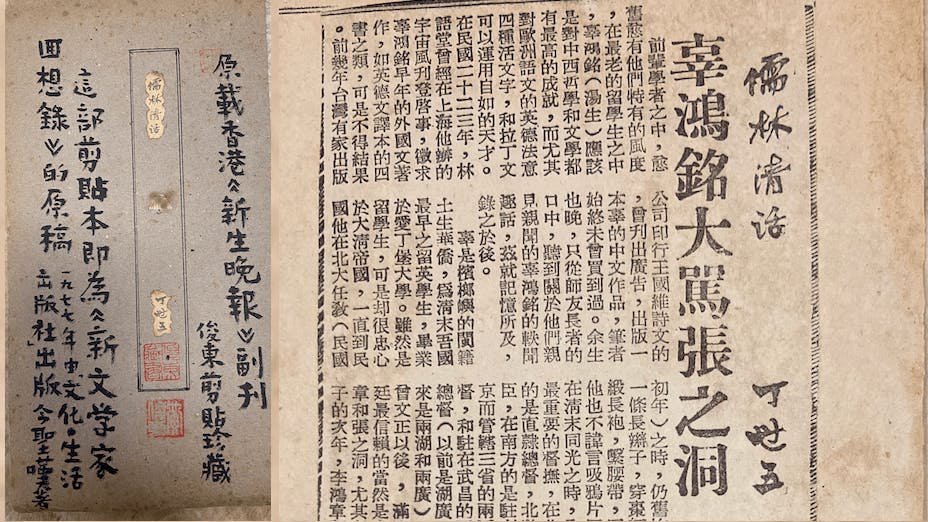 原載香港《新生晚報》副刊
俊東剪貼珍藏
儒林清话
丁世五
這部剪貼本即為《新文学家
回想錄》的原稿
一九七七年由文化·生活
出版社出版 今聖嘆著
儒林清话
丁世五
辜鴻銘大罵張之洞
前輩學者之中,愈
舊愈有他們特有的風度
,在最老的留學生之中
,辜鴻銘(湯生)應該
是對中西哲學和文學都
有最高的成就,而尤其
對歐洲語文的英德法意
四種活文字,和拉丁文
可以運用自如的天才。
在民國二十二三年,林
語堂曾經在上海他辦的
宇宙風刊登啓事,徵求
辜鴻銘早年的外國文著
作,如英德文譯本的四
書之類,可是不得結果
。前幾年台灣有家出版
公司印行王國維詩文的
,曾刊出廣告,出版一
本辜的中文作品,筆者
始終未曾買到過。余生
也晚,只從師友長者的
口中,聽到關於他們親
見親聞的辜鴻銘的軼聞
趣話,茲就記憶所及,
錄之於後。
辜是檳榔嶼的閩籍
土生華僑,為清末吾國
最早之留英學生,畢業
於愛丁堡大學。雖然是
留學生,可是却很忠心
於大清帝國,一直到民
國他在北大任教(民國
初年)之時,仍舊
一條長辮子,穿棗
緞長袍,繫腰帶,
他也不諱言吸鴉片
在清末同光之時,
最重要的督撫,在
的是直隸總督,北
臣,在南方的是駐
京而管轄三省的兩
督,和駐在武昌的
總督(以前是湖廣
來是兩湖和兩廣)
曾文正以後,滿
廷最信賴的當然是
章和張之洞,尤其
子的次年,李鴻章